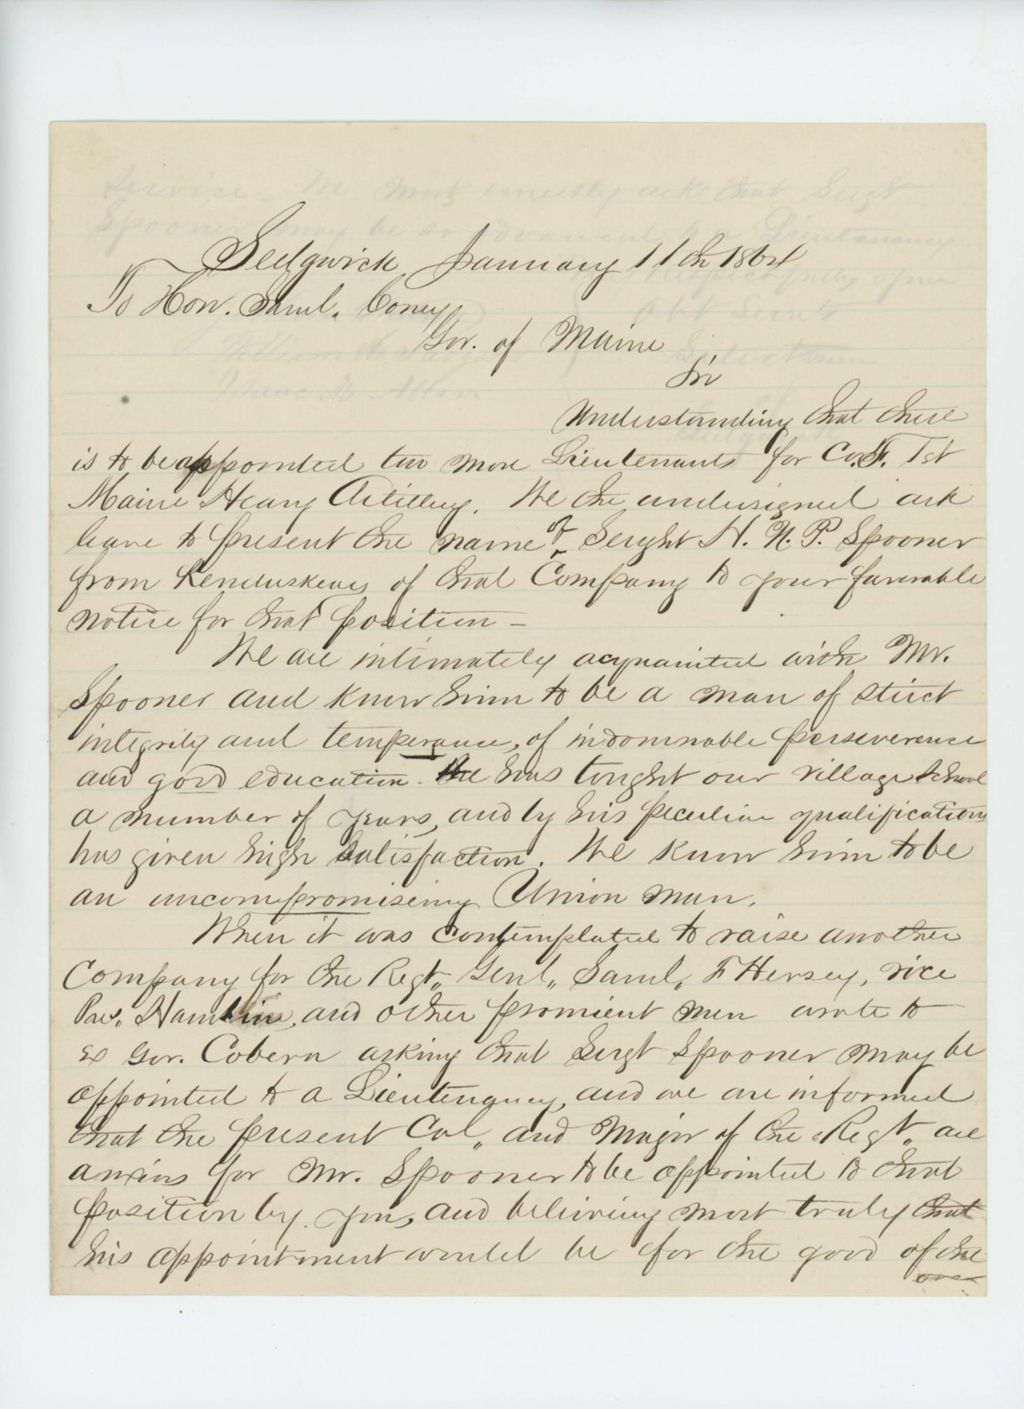 Sedgwick January 11th 1864
To Hon. Saml. Coney
Gov. of Maine
Sir
Understanding that there
is to be appointed two more Lieutenants for Co. F. 1st
Maine Heavy Artillery. We the undersigned ask
leave to present the name of Serght H. N. P. Spooner
from Kenduskeag of that Company to your favorable
notice for that position –
We are intimately acquainted with Mr.
Spooner and know him to be a man of strict
integrity and temperance, of indomnable perseverence
and good education. He has tought our village School
a number of years, and by his peculiar qualifications
has given high satisfaction. We know him to be
an uncompromising Union man.
When it was contemplated to raise another
Company for the Regt. Genl. Saml. F Hersey, vice
Pres. Hamlin, and other promient men wrote to
Ex Gov. Cobern asking that Sergt Spooner may be
appointed to a Lieutenancy, and we are informed
that the present Col. and Major of the Regt. are
anxins for Mr. Spooner to be appointed to that
position by you, and believing most truly that
his appointment would be for the good of the
over